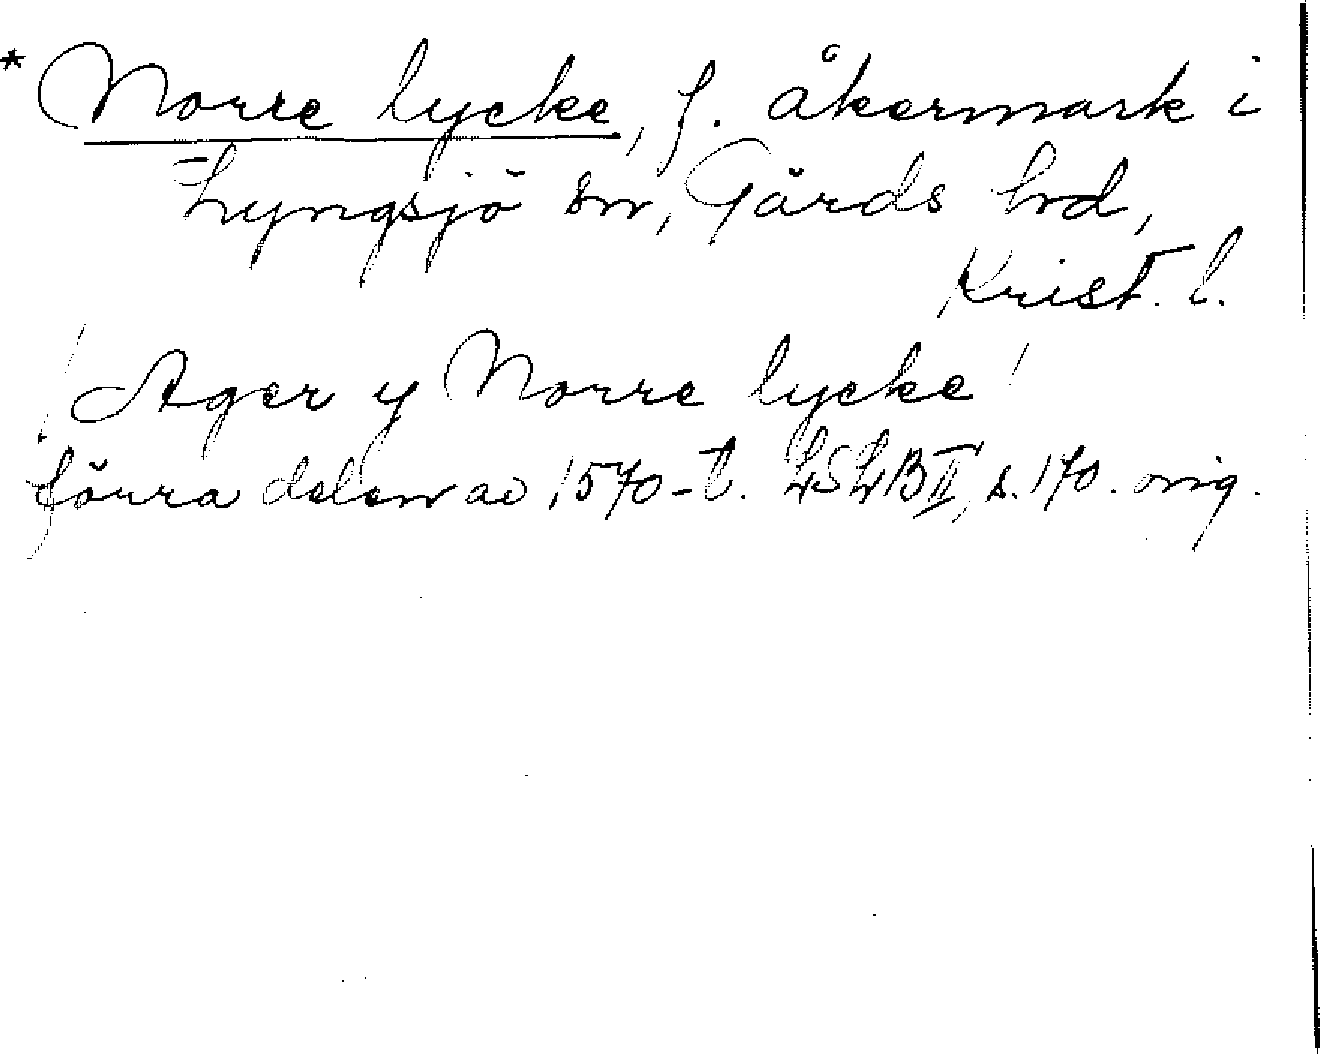 * Norre lycke, f. åkermark i
Lyngsjö sn, Gärds hd,
Krist. l.
'Ager y Norre lycke'
förra delen av 1570-t. LSLB II, s. 170. orig.